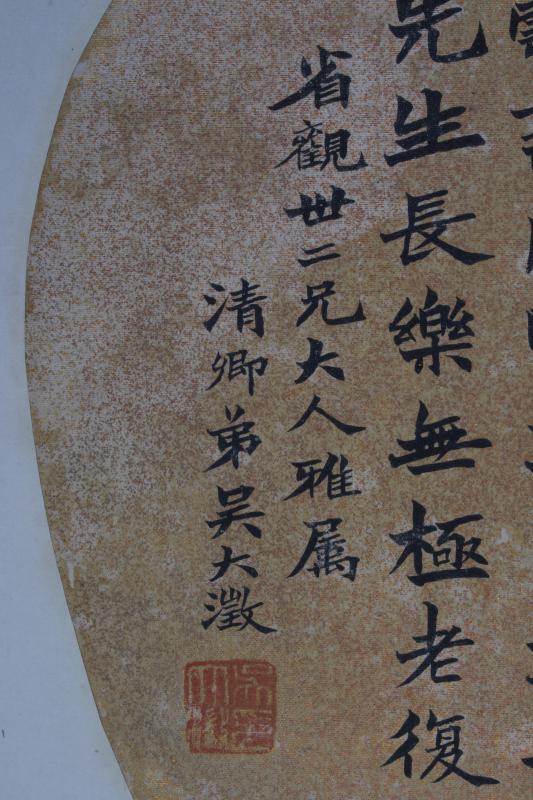 先生長樂無極老復
省觀丗二兄大人雅属
清卿弟吳大澂